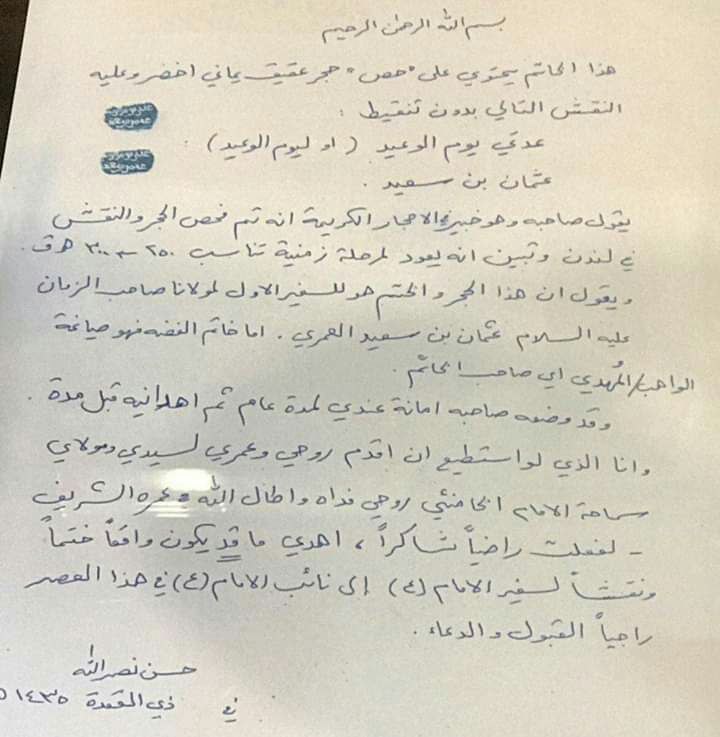 بسم الله الرحمن الرحيم
هذا الخاتم يحتوي على "حص" حجر عقيق يماني اخضر وعليه
النقش التالي بدون تنقيط :
عدتي يوم الوعيد (او ليوم الوعيد) :
عثمان بن سعيد .
يقول صاحبه وهو خبير في الاحجار الكريمة انه تم فحص الحجر والنقش
في لندن وتبين انه يعود لمرحلة زمنية تناسب ٢٥٠ → ٣٠٠ هـ ق.
ويقول ان هذا الحجر والختم هو للسفير الاول لمولانا صاحب الزمان
عليه السلام عثمان بن سعيد العمري . اما خاتم الفضه فهو صياغة
الواهب/المُهدي اي صاحب الخاتم .
وقد وضعه صاحبه امانة عندي لمدة عام ثم اهدانيه قبل مدة .
وانا الذي لو استطيع ان اقدم روحي وعمري لسيدي ومولاي
سماحة الامام الخامنئي روحي فداه واطال الله عمره الشريف
- لفعلت راضياً شاكراً ، اهدي ما قد يكون واقعاً ختماً
ونقشاً لسفير الامام (ع) إلى نائب الامام (ع) في هذا العصر
راجياً القبول والدعاء .
حسن نصرالله
في ذي القعدة ١٤٣٥